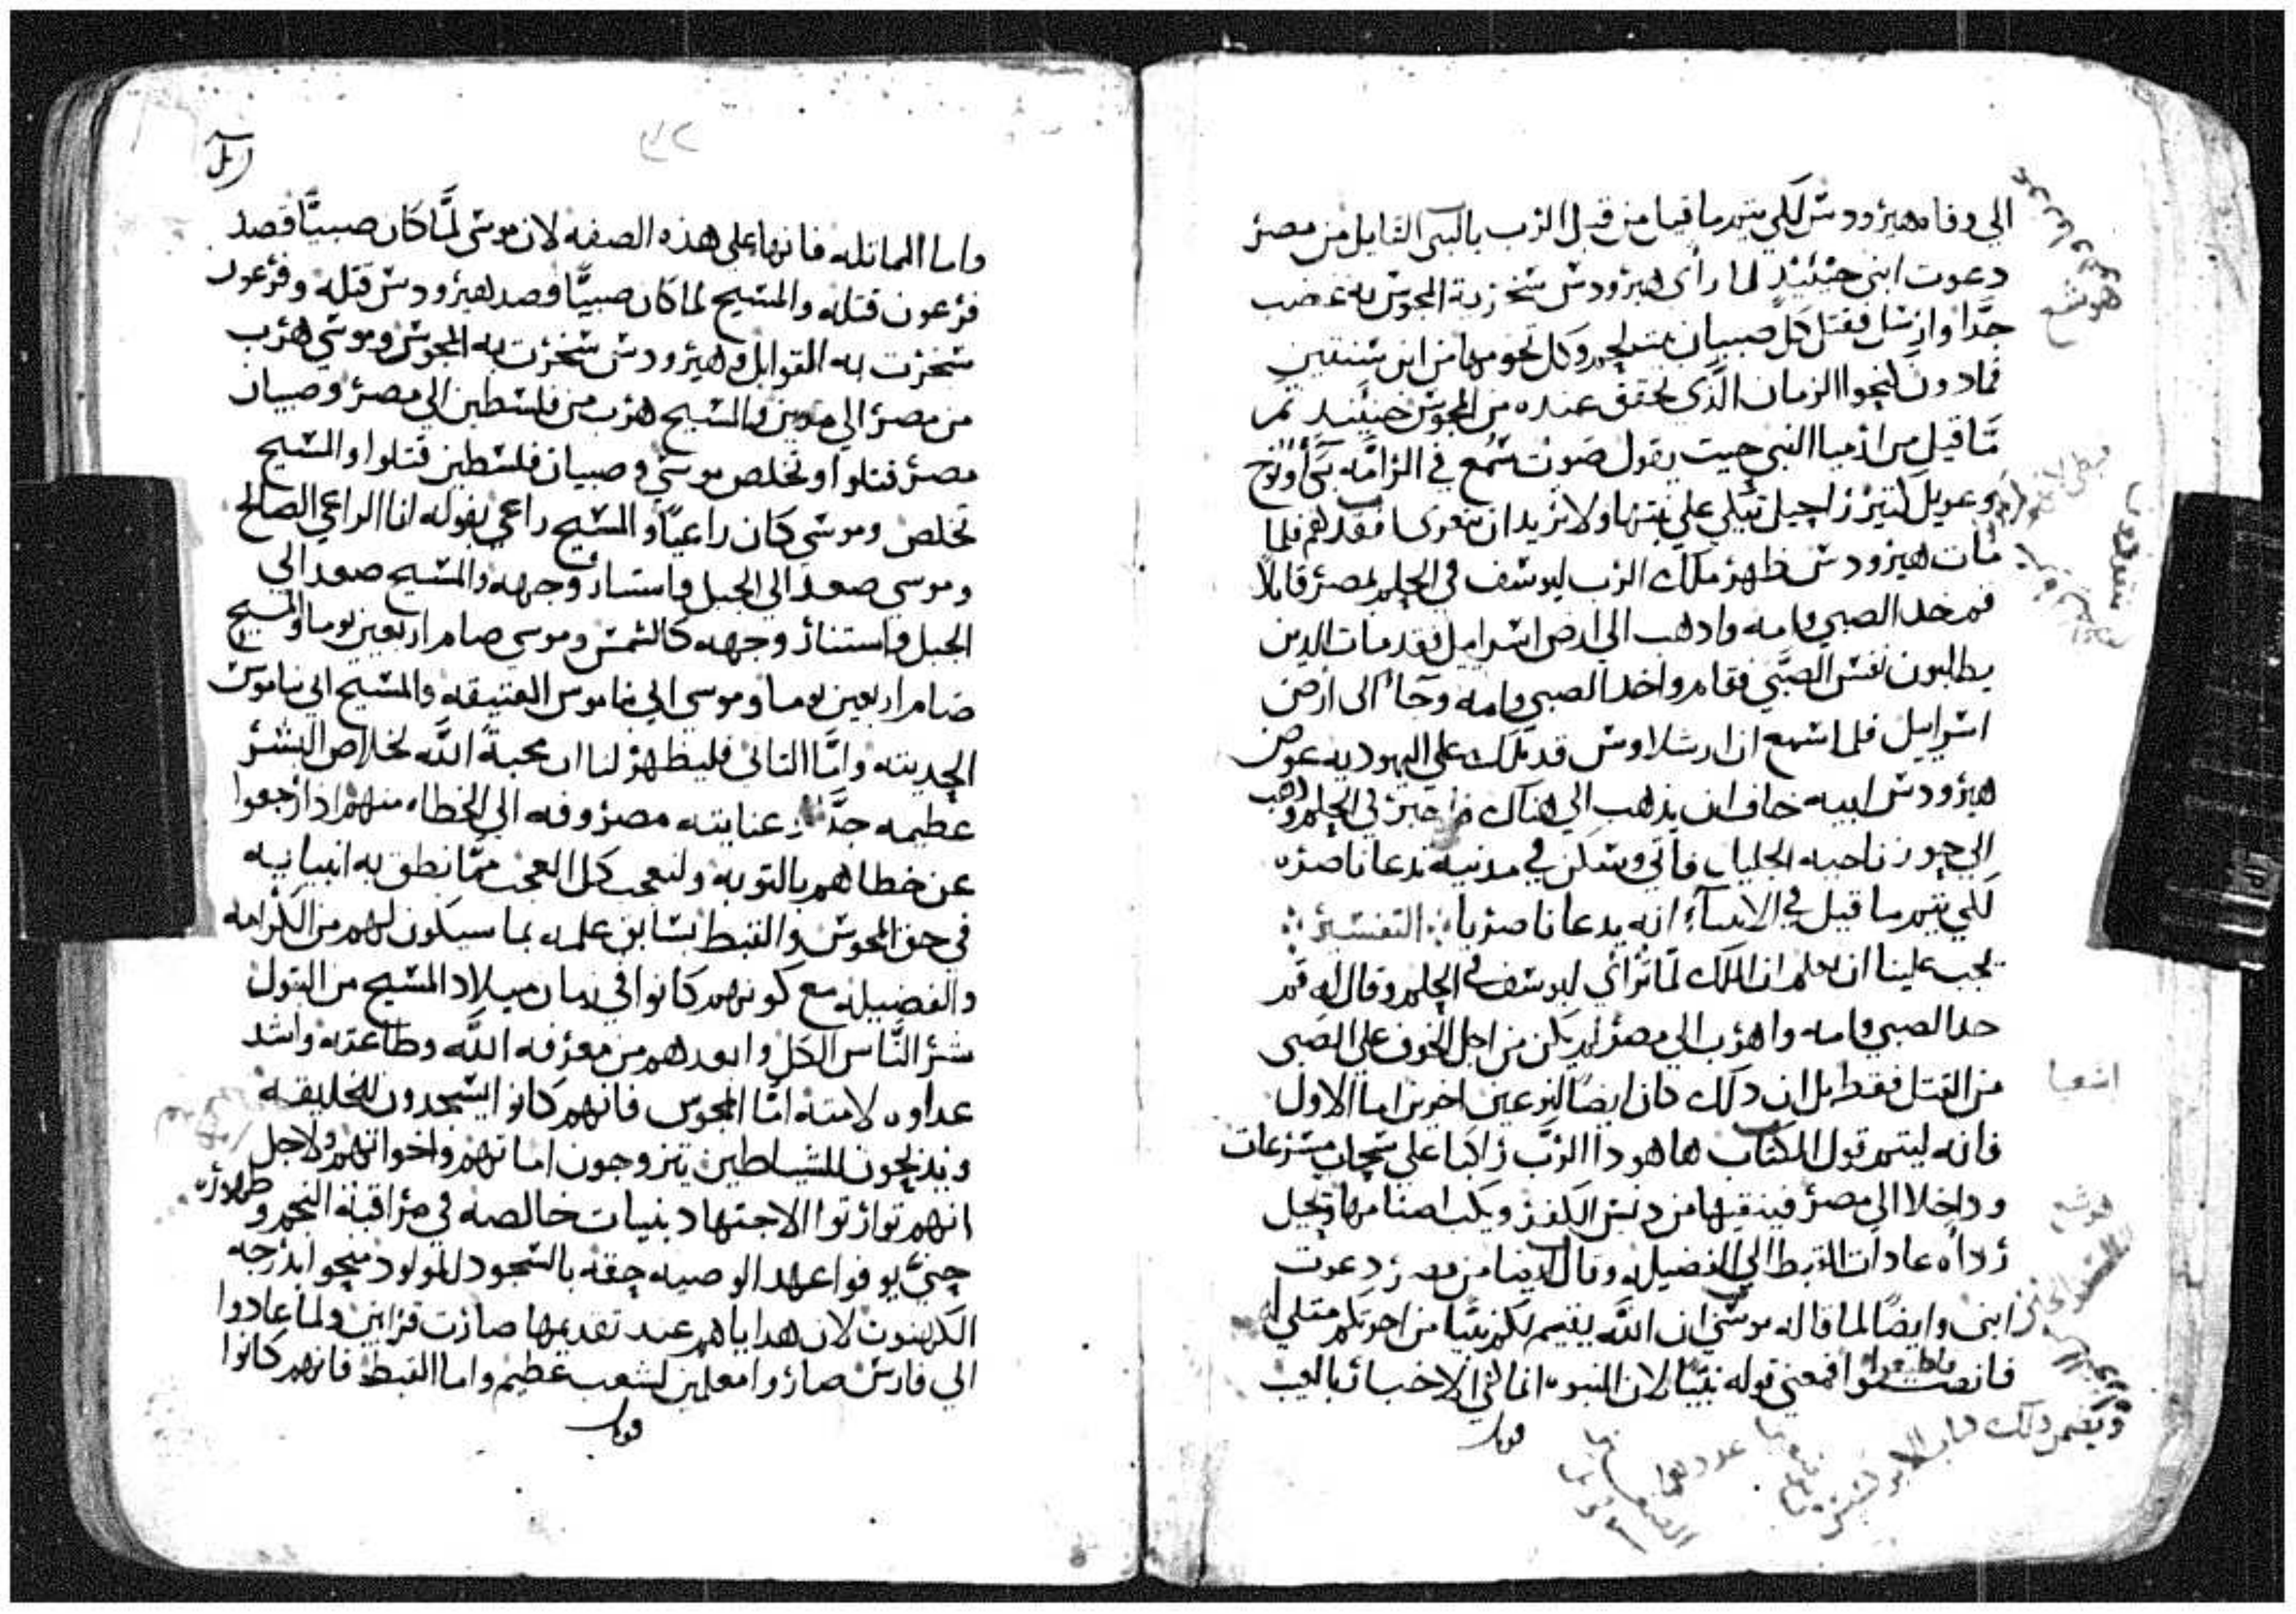 الي وفاه هيرودس لكي يتم ما قيل من قبل الرب بالنبي القايل من مصر
دعوت ابني حينيذٍ لما رأى هيرودس سخرية المجوس به غضب
جدًا وارسل فقتل كل صبيان بيت لحم وكل تخومها من ابن سنتين
فما دون كنحو الزمان الذي تحقق عنده من المجوس حينيذ تم
ما قيل من ارميا النبي حيث يقول صوت سُمع في الرامه بكأ ونوح
وعويل كتير راحيل تبكي علي بنيها ولا تريد ان تتعزى لفقدهم فلما
مات هيرودس ظهر ملاك الرب ليوسف في الحلم بمصر قايلا
قم خد الصبي وامه وادهب الي ارض اسراييل فقد مات الدين
يطلبون نفس الصبي فقام واخد الصبي وامه وجاء الى ارض
اسراييل فلما سمع ان ارشلاوس قد ملك علي اليهوديه عوض
هيرودس ابيه خاف ان يذهب الي هناك فاخبر في الحلم ودهب
الي حوز ناحيه الجليل فاتي وسكن في مدنية تدعا ناصره
لكي يتم ما قيل في الانبيآء انه يدعا ناصريا ∴ التفسير ∴
يجب علينا ان نعلم ان الملاك لما ترائي ليوسف في الحلم وقال له قم
خد الصبي وامه واهرب الي مصر لم يكن من اجل الخوف علي الصبي
من القتل فقط بل ان دلك كان ايضًا لنوعين اخرين اما الاول
فانه ليتم قول الكتاب ها هو دا الرب راكبا علي سحاب مسرعات
وداخلا الي مصر فينقيها من دنس الكفر ويكب اصنامها ويحيل
رداه عادات القبط الي الفضيله وقال ايضا من مصر دعوت
ابني وايضًا لما قاله موسي ان الله يقيم لكم نبيًا من اخوتكم متلي له
فانصتوا واطيعوا فمعني قوله نبيًا لان النبوه انما هي الاخبار بالغيب
قوله
هوشع
اشعيا
هوشع
واما المماتله فانها علي هذه الصفه لان موسى لمّا كان صبيًّا قصد
فرعون قتله والمسيح لما كان صبيًّا قصد هيرودس قتله وفرعون
سخرت به القوابل وهيرودس سخرت به المجوس وموسي هرب
من مصر الي مدين والمسيح هرب من فلسطين الي مصر وصبيان
مصر قتلوا وتخلص موسي وصبيان فلسطين قتلوا والمسيح
تخلص وموسي كان راعيًا والمسيح راعي بقوله انا الراعي الصالح
وموسى صعد الي الجبل فاستنار وجهه والمسيح صعد الي
الجبل واستنار وجهه كالشمس وموسى صام اربعين يوما والمسيح
صام اربعين يوما وموسى اتي بناموس العتيقه والمسيح اتي بناموس
الحديته وامّا التاني فليظهر لنا ان محبة الله لخلاص البشر
عظيمه جدًا وعنايته مصروفه الي الخطاه منهم اذا رجعوا
عن خطاهم بالتوبه ولنعجب كل العجب ممّا نطق به انبيايه
في حق المجوس والقبط بسابق علمه بما سيكون لهم من الكرامه
والفضيله مع كونهم كانوا في زمان ميلاد المسيح من البتول
شر النّاس الكل وابعدهم من معرفه الله وطاعته واشد
عداوه لامته امّا المجوس فانهم كانوا يسجدون للخليقه
ويذبحون للشياطين يتزوجون امهاتهم واخواتهم ولاجل
انهم توارتوا الاجتهاد بنيات خالصه في مراقبة النجم وظهوره
حتي يوفوا عهد الوصيه حقه بالسجود للمولود منحوا بدرجه
الكهنوت لان هداياهم عند تقديمها صارت قرابين ولما عادوا
الي فارس صاروا معلمين لشعب عظيم واما القبط فانهم كانوا
قوله